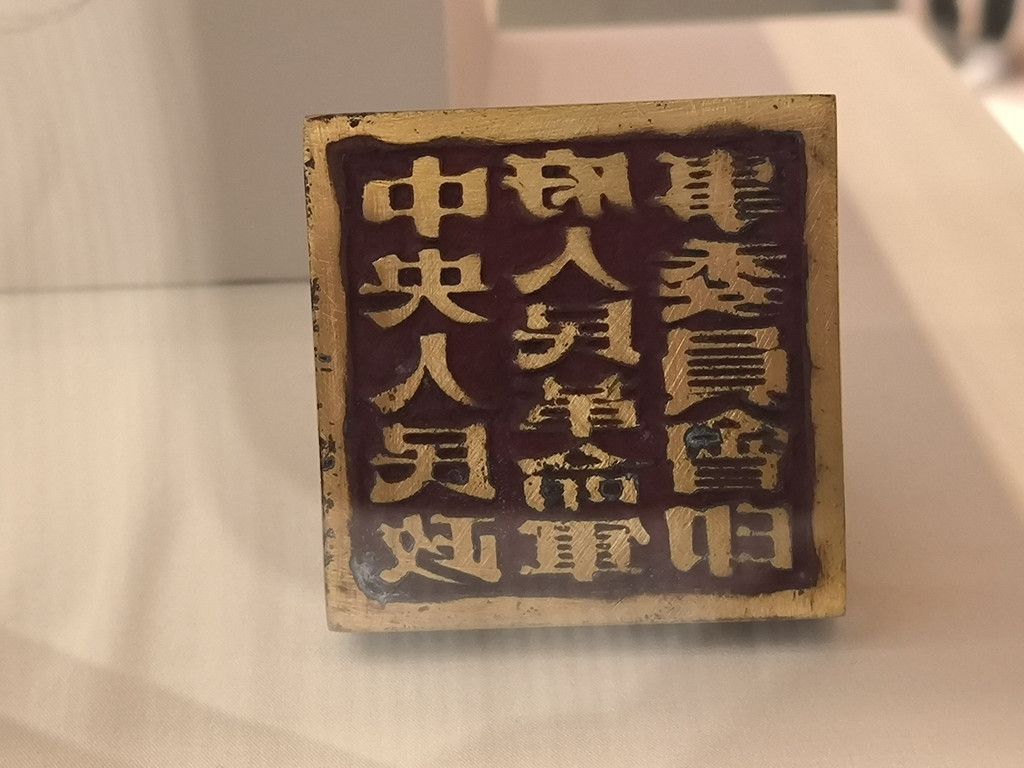 中央人民政
府人民革命軍
事委員會印